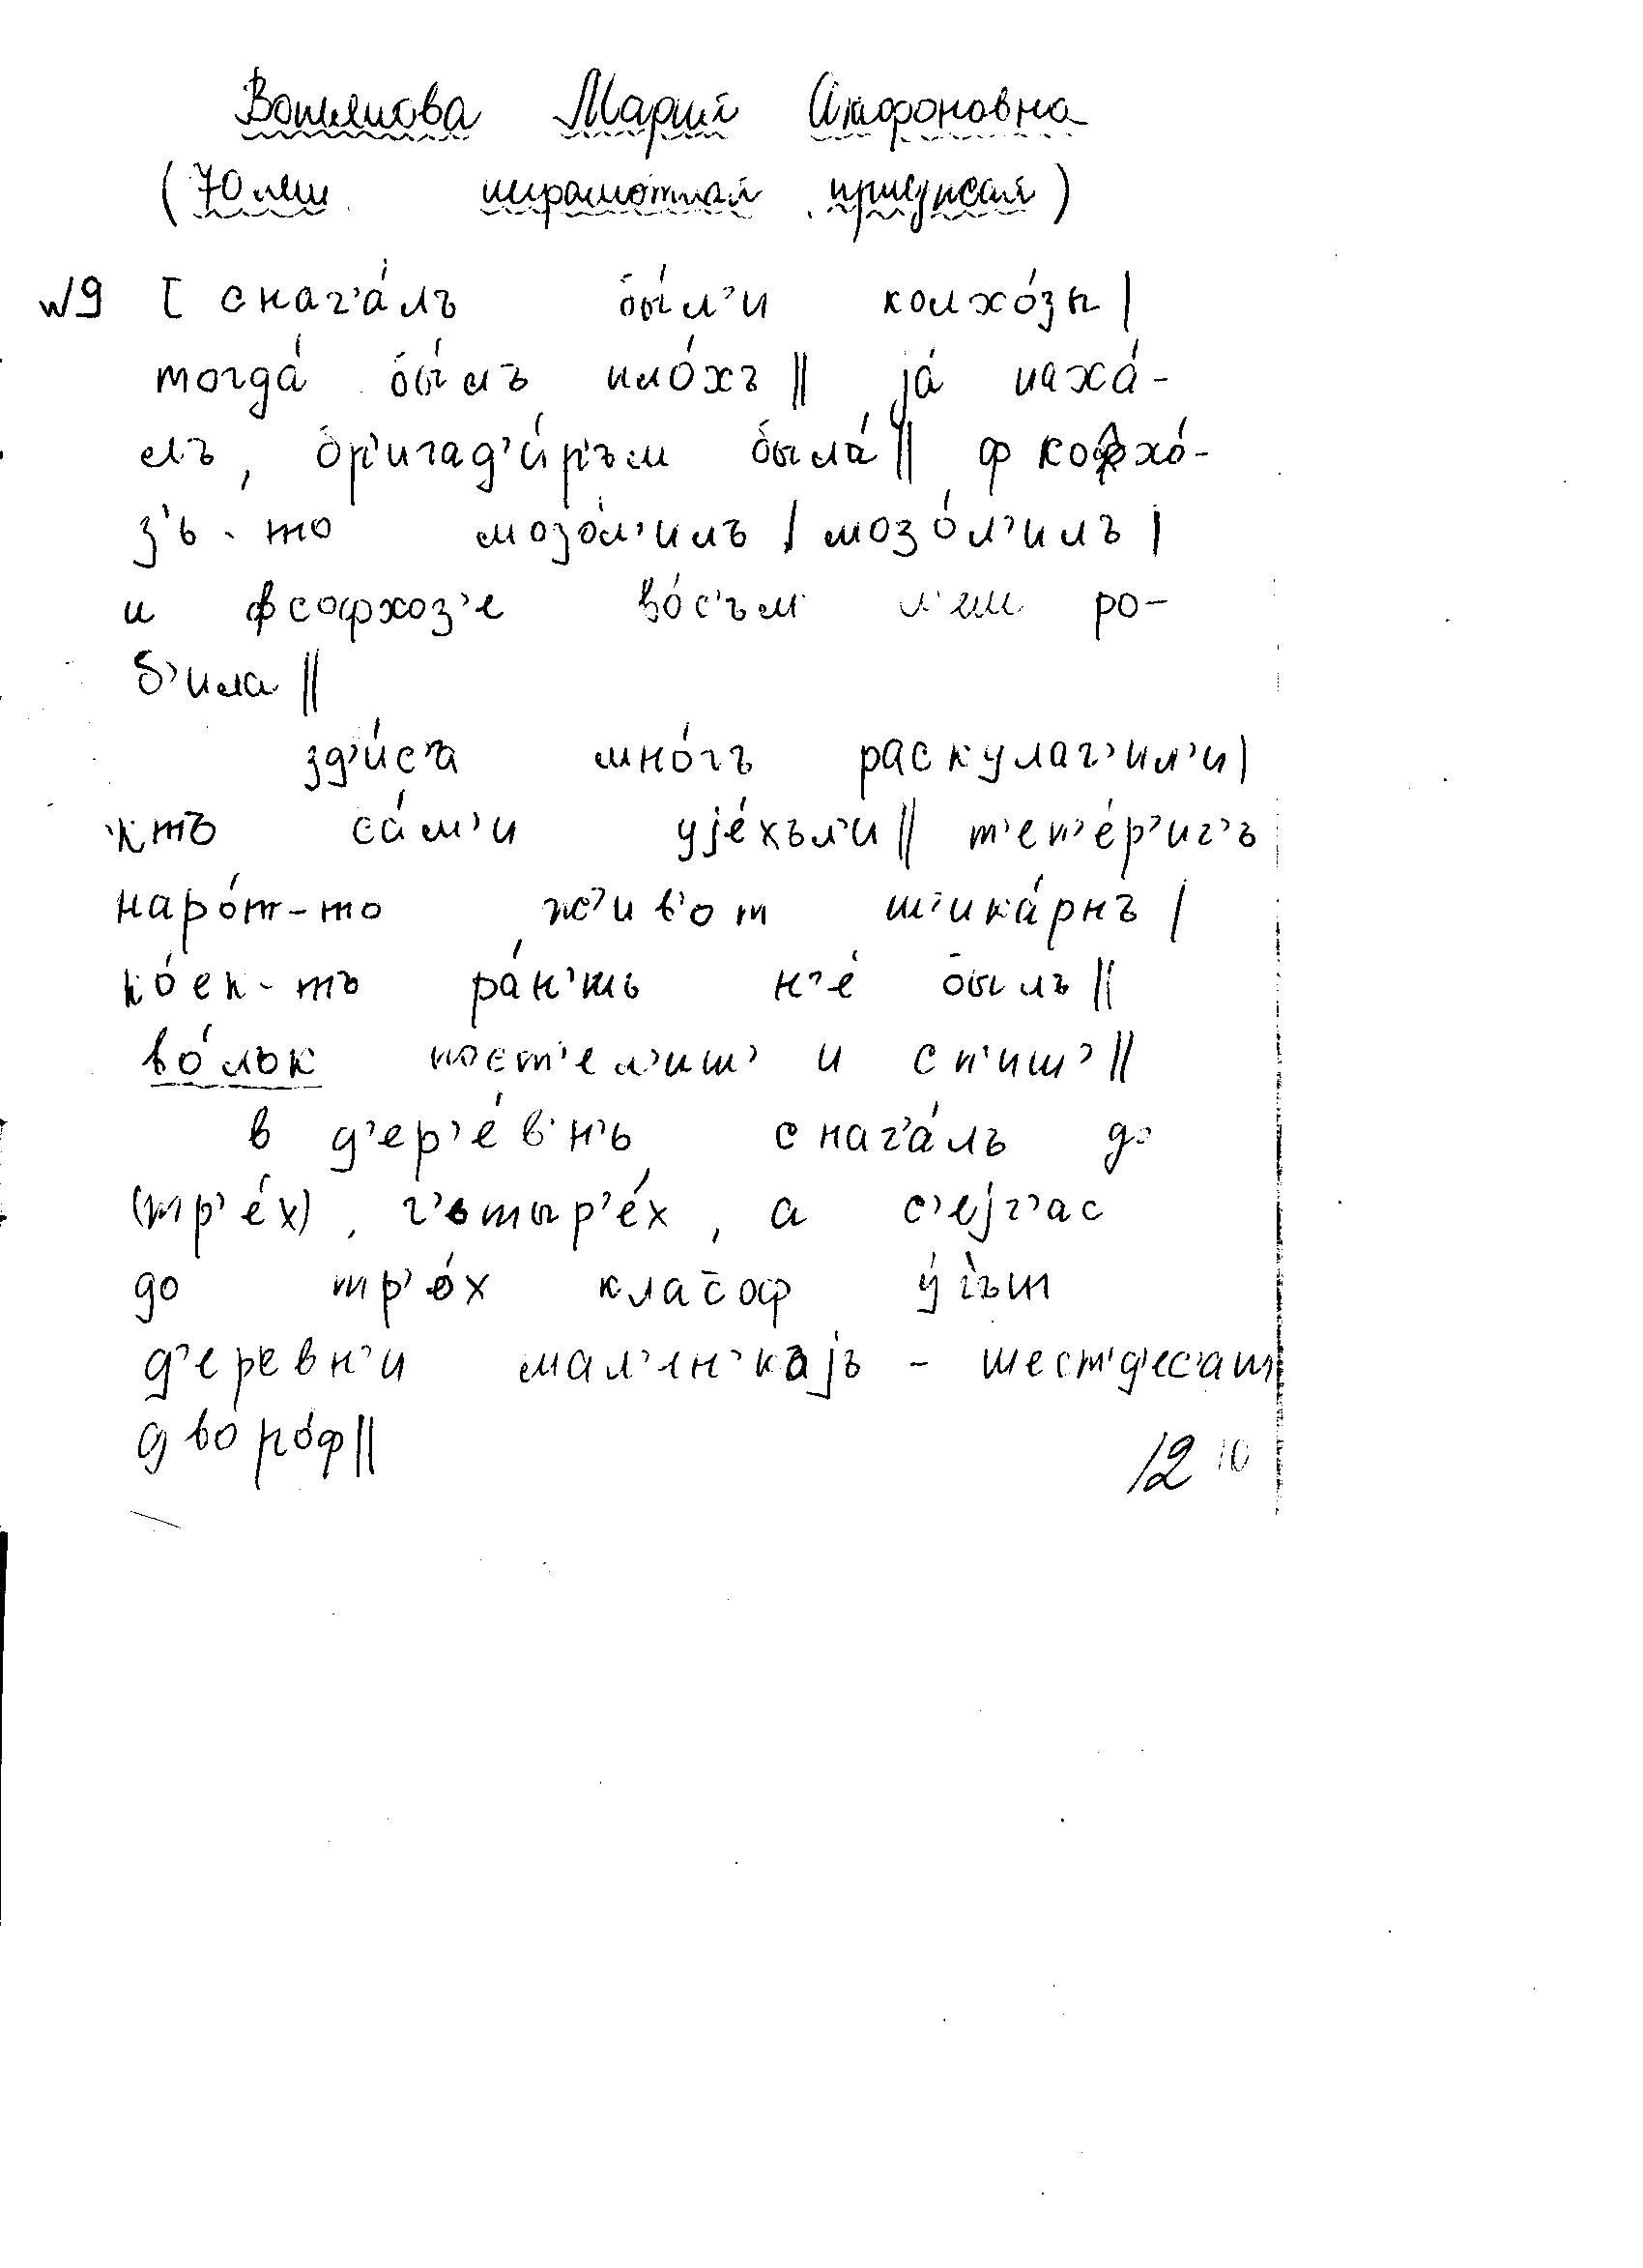 Вотякова Мария Агафоновна
(70 лет неграмотная приезжая)
№9 [ снач'а́лъ бы́л'и колхо́зы |
тогда́ бы́лъ пло́хъ || jа́ паха́-
лъ, бр'игад'и́р'ъм была́ || ф кофхо́-
з'ь-то мозо́л'илъ | мозо́л'илъ |
и фсофхоз'е во́с'ъм л'ет ро-
б'ила ||
зд'и́с'а мно́гъ раскулач'ил'и |
ктъ са́м'и уjе́хъл'и || т'еп'е́р'ич'ъ
наро́т-то ж'ив'от ш'ика́рнъ |
ко́ек-тъ ра́н'шь н'е́ былъ ||
во́лък пост'ел'иш' и сп'иш' ||
в д'ер'е́в'н'ь снач'а́лъ до
(тр'е́х), ч'ьтыр'е́х, а с'еjч'ас
до тр'о́х класоф у́ч'ът
д'еревн'и мал'ин'каjъ - шест'д'ес'ат
дворо́ф ||
12 10